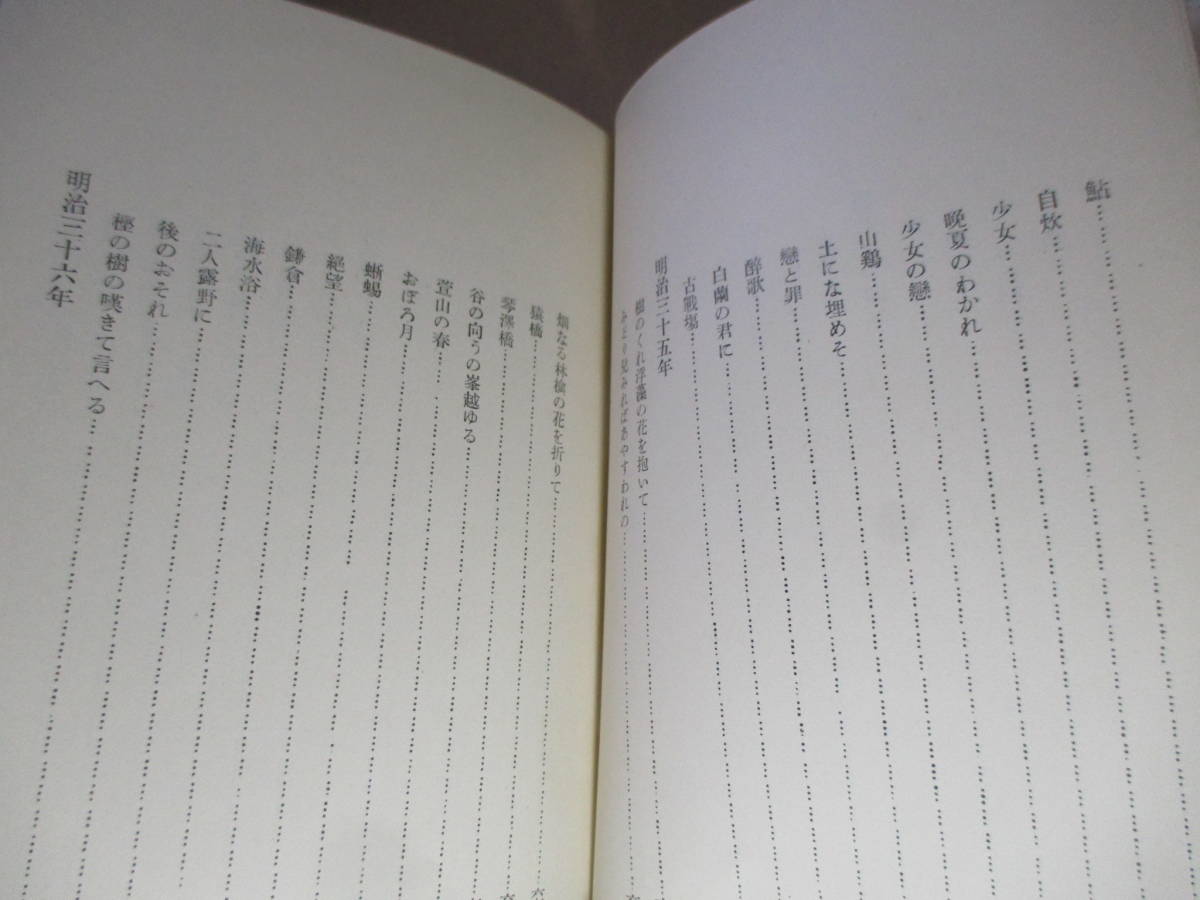 鮎……………………
自炊……………………
少女……………………
晩夏のわかれ……………………
少女の戀……………………
山鶏……………………
土にな埋めそ……………………
戀と罪……………………
醉歌……………………
白繭の君に……………………
古戰場……………………
明治三十五年
樹のくれ浮藻の花を抱いて……………………
みどり兒みればあやすわれの……………………
畑なる林檎の花を折りて……………………
猿橋……………………
琴澤橋……………………
谷の向うの峯越ゆる……………………
萱山の春……………………
おぼろ月……………………
蜥蜴……………………
絶望……………………
鎌倉……………………
海水浴……………………
二人露野に……………………
後のおそれ……………………
樫の樹の嘆きて言へる……………………
明治三十六年